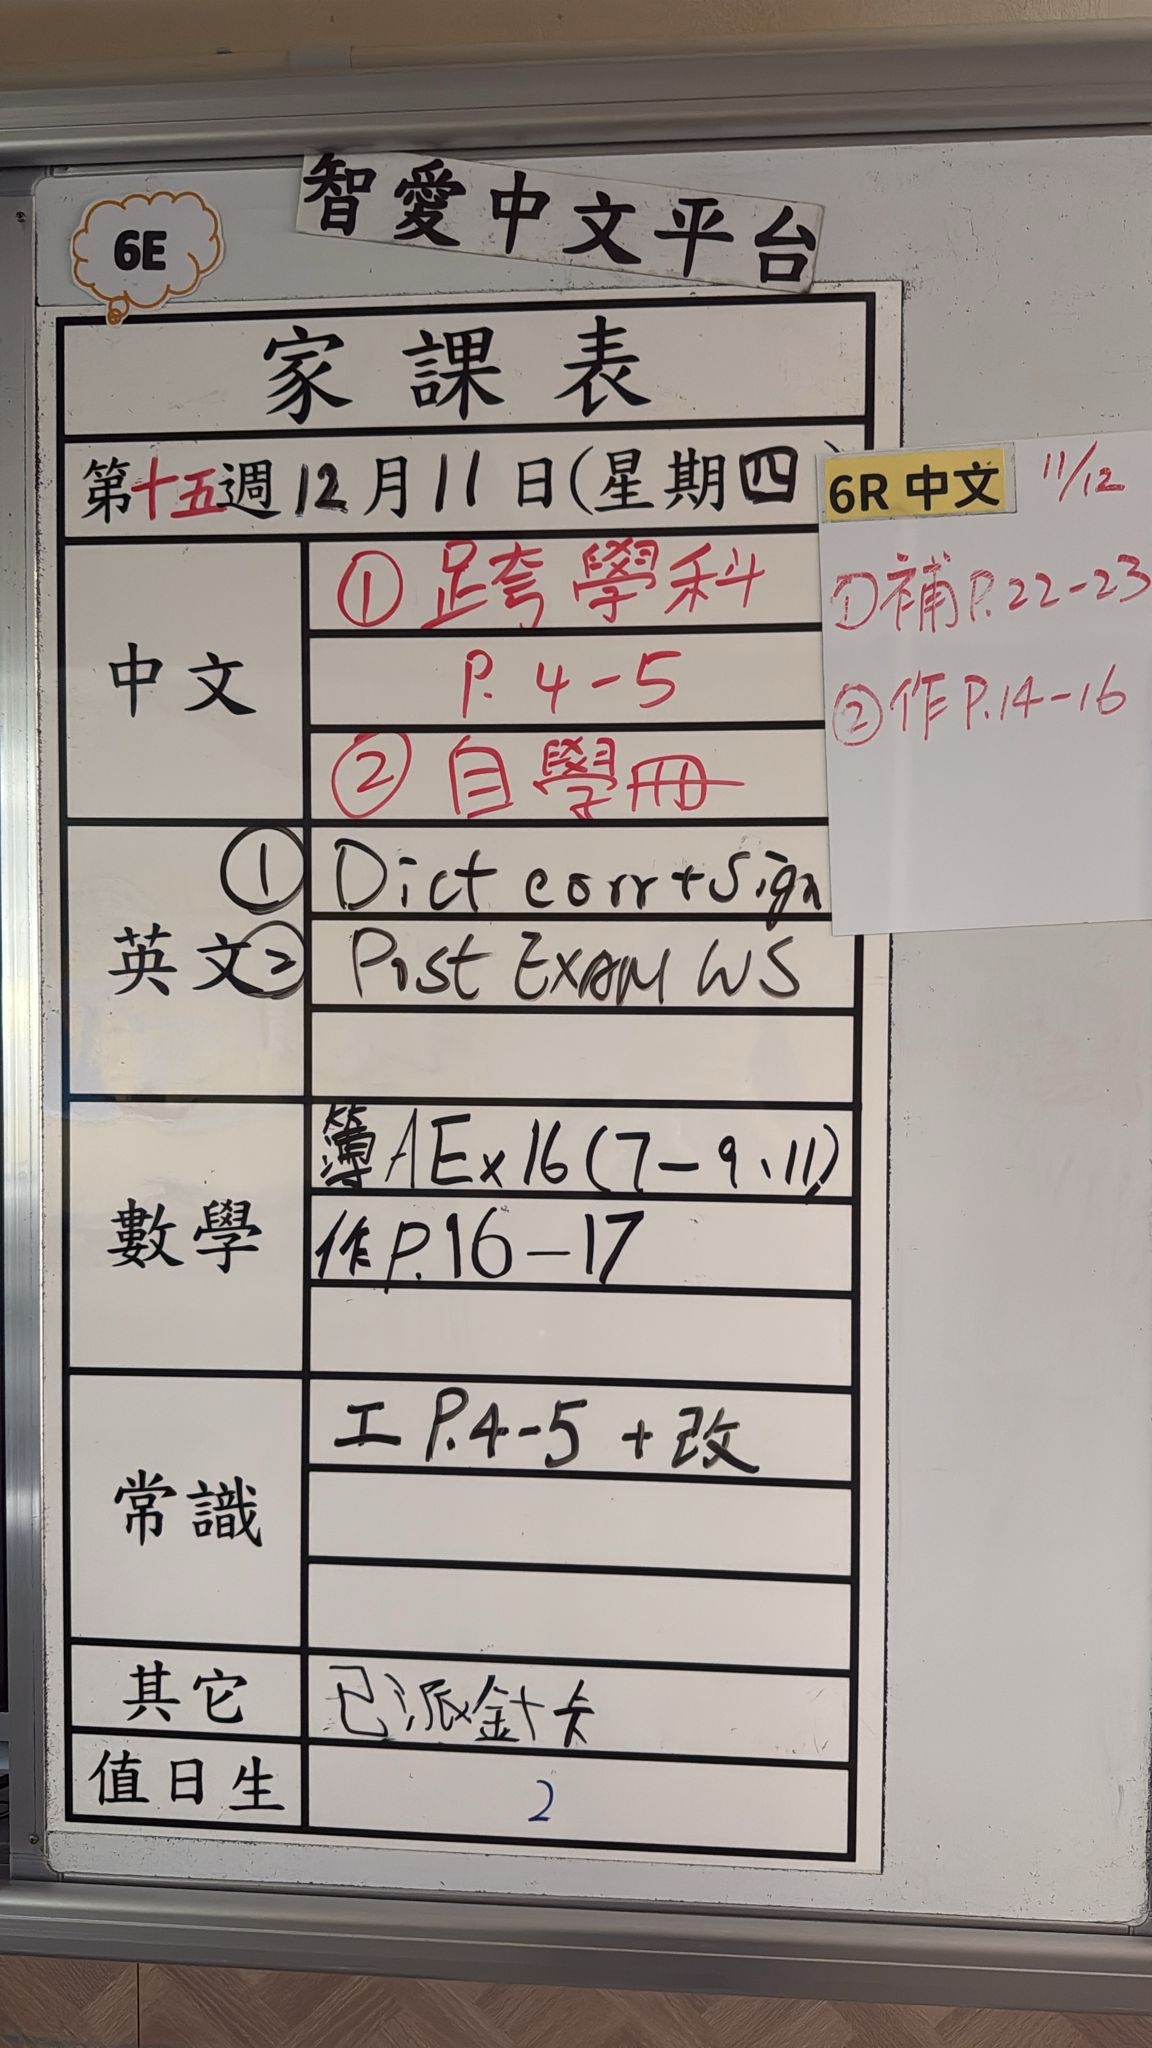 智愛中文平台
6E
家課表
第十五週12月11日(星期四)
中文
①跨學科
P.4-5
②自學冊
英文
① Dict corr+Sign
② Post EXAM WS
數學
簿AEx16(7-9、11)
作P.16-17
常識
工P.4-5+改
其它
已派針卡
值日生
2
6R中文 11/12
①補P.22-23
②作P.14-16